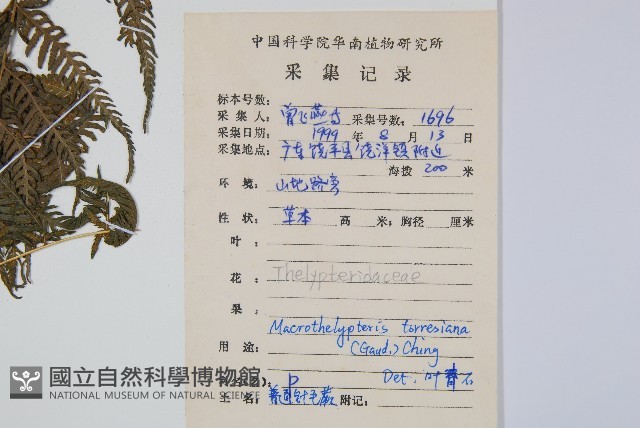 中国科学院华南植物研究所
采集记录
标本号数:
采集人: 曾飞燕等 采集号数: 1696
采集日期: 1999 年 8 月 13 日
采集地点: 广东饶平县饶洋镇附近
海拨 200 米
环境: 山地路旁
性状: 草本 高 米; 胸径 厘米
叶:
花: Thelypteridaceae
果:
Macrothelypteris torresiana
用途: (Gaud.) Ching
Det. 叶
P
土名: 普通针毛蕨 附记:
國立自然科學博物館
NATIONAL MUSEUM OF NATURAL SCIENCE